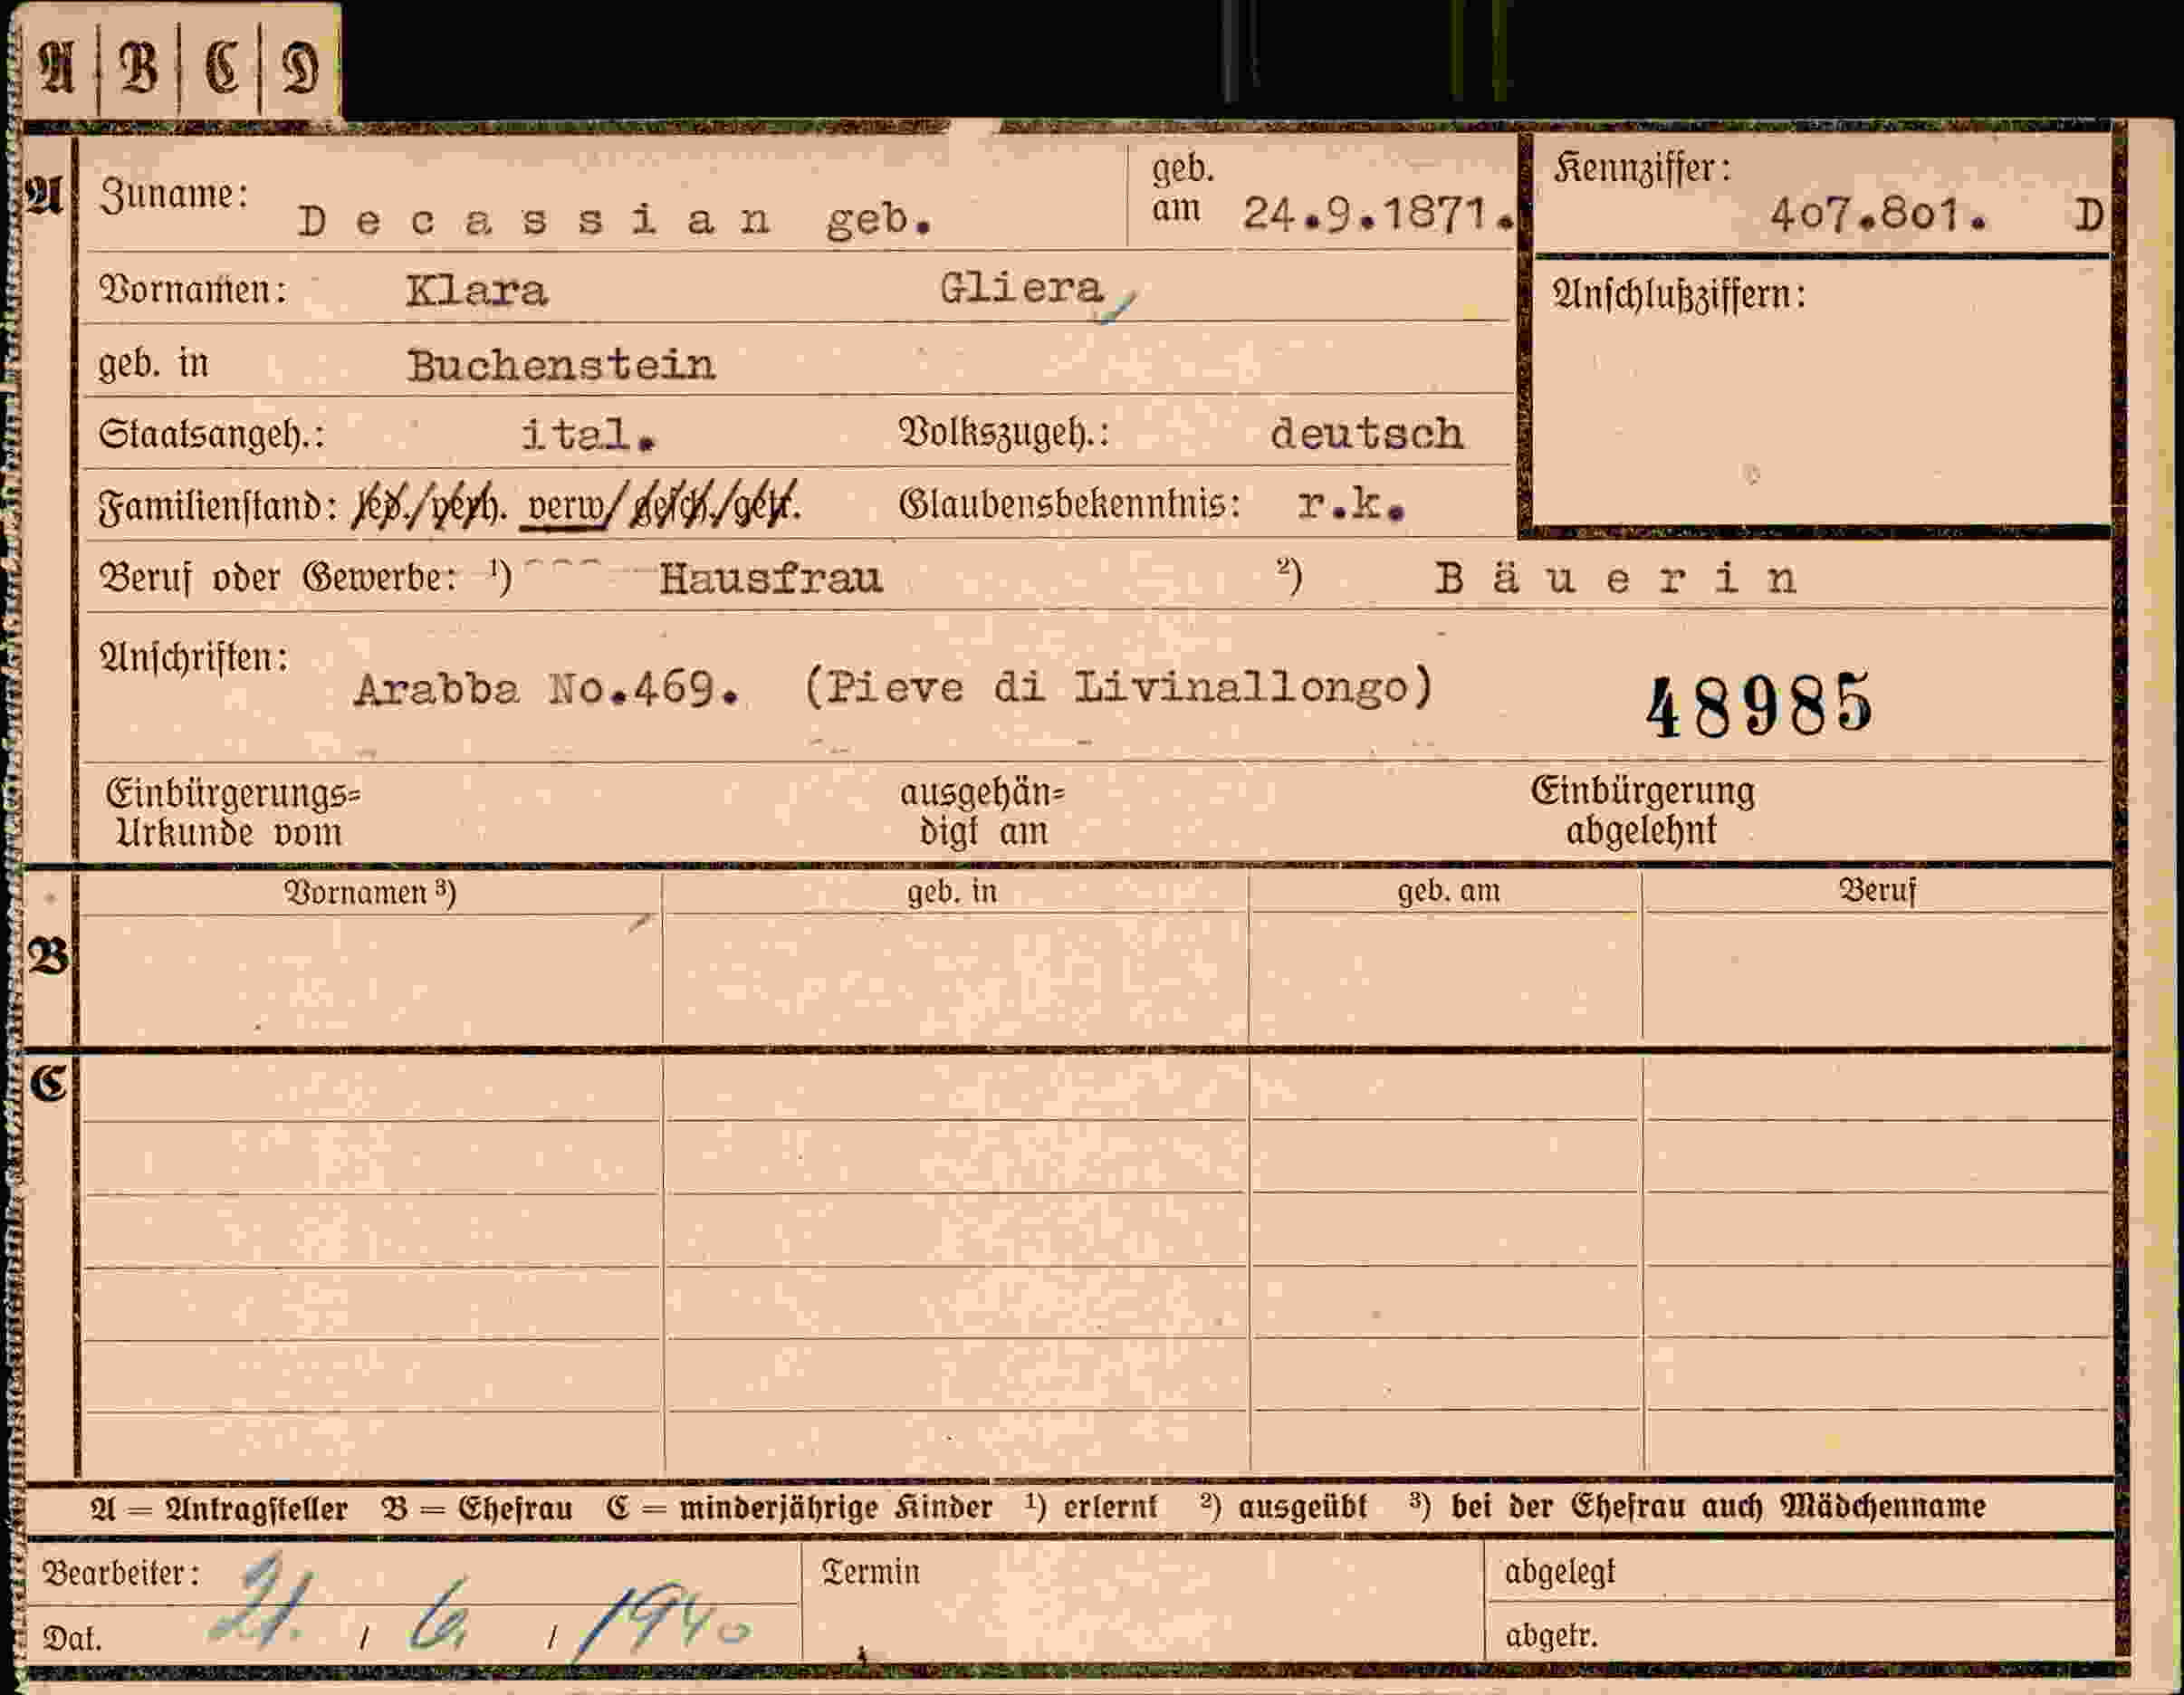 A | B | C | D
A Zuname: Decassian geb. geb. am 24.9.1871. Kennziffer: 407.801. D
Vornamen: Klara Gliera, Anschlußziffern:
geb. in Buchenstein
Staatsangeh.: ital. Volkszugeh.: deutsch
Familienstand: led./verh. verw/gesch./getr. Glaubensbekenntnis: r.k.
Beruf oder Gewerbe: ¹) Hausfrau ²) Bäuerin
Anschriften: Arabba No.469. (Pieve di Livinallongo) 48985
Einbürgerungs= ausgehän= Einbürgerung
Urkunde vom digt am abgelehnt
Vornamen ³) geb. in geb. am Beruf
B
C
A = Antragsteller B = Ehefrau C = minderjährige Kinder ¹) erlernt ²) ausgeübt ³) bei der Ehefrau auch Mädchenname
Bearbeiter: Termin abgelegt
Dat. 21. / 6. / 1940 abgetr.